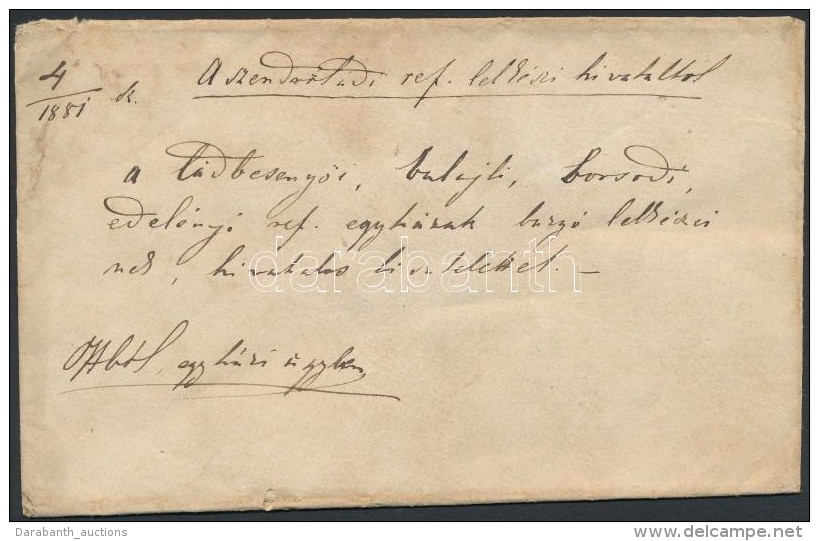 4/1881 sz. A szendrőládi ref. lelkészi hivataltol
a ládbesenyői, balajti, borsodi,
edelényi ref. egyházak buzgó lelkészei
nek, hivatalos tisztelettel. –
darabanth
egyházi ügyben
Darabanth_auctions
www.delcampe.net